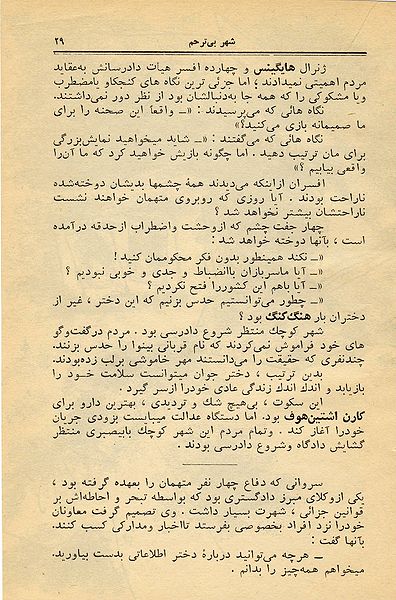 شهر بی‌ترحم
۲۹
ژنرال هایگینس و چهارده افسر هیات دادرسانش به‌عقاید
مردم اهمیتی نمیدادند؛ اما جزئی ترین نگاه های کنجکاو یامضطرب
ویا مشکوکی را که همه جا به‌دنبالشان بود از نظر دور نمی‌داشتند.
نگاه هائی که می‌پرسیدند : «ـ واقعاً این صحنه را برای
ما صمیمانه بازی می‌کنید؟»
نگاه هائی که می‌گفتند : «ـ شاید میخواهید نمایش‌بزرگی
برای مان ترتیب دهید . اما چگونه بازیش خواهید کرد که ما آن‌را
واقعی بیابیم ؟»
افسران ازاینکه می‌دیدند همهٔ چشمها بدیشان دوخته‌شده
ناراحت بودند . آیا روزی که روبروی متهمان خواهند نشست
ناراحتشان بیشتر نخواهد شد ؟
چهار جفت چشم که ازوحشت واضطراب ازحدقه درآمده
است ، بآنها دوخته خواهد شد :
«ـ نکند همینطور بدون فکر محکوممان کنید !
«ـ آیا ماسربازان باانضباط و جدی و خوبی نبودیم ؟
«ـ آیا باهم این کشوررا فتح نکردیم ؟
«ـ چطور می‌توانستیم حدس بزنیم که این دختر ، غیر از
دختران بار هنگ‌کنگ بود ؟
شهر کوچك منتظر شروع دادرسی بود . مردم درگفت‌وگو
های خود فراموش نمی‌کردند که نام قربانی بینوا را حدس بزنند.
چندنفری که حقیقت را می‌دانستند مهر خاموشی برلب زده‌بودند.
بدین ترتیب ، دختر جوان میتوانست سلامت خود را
بازیابد و اندك اندك زندگی عادی خودرا ازسر گیرد .
این سکوت ، بی‌هیچ شك و تردیدی ، بهترین دارو برای
کارن اشتین‌هوف بود. اما دستگاه عدالت میبایست بزودی جریان
خودرا آغاز کند . وتمام مردم این شهر کوچك بابیصبری منتظر
گشایش دادگاه وشروع دادرسی بودند.
سروانی که دفاع چهار نفر متهمان را بعهده گرفته بود ،
یکی ازوکلای مبرز دادگستری بود که بواسطه تبحر و احاطه‌اش بر
قوانین جزائی ، شهرت بسیار داشت . وی تصمیم گرفت معاونان
خودرا نزد افراد بخصوصی بفرستد تااخبار ومدارکی کسب کنند.
بآنها گفت :
ـ هرچه می‌توانید دربارهٔ دختر اطلاعاتی بدست بیاورید.
میخواهم همه‌چیز را بدانم .